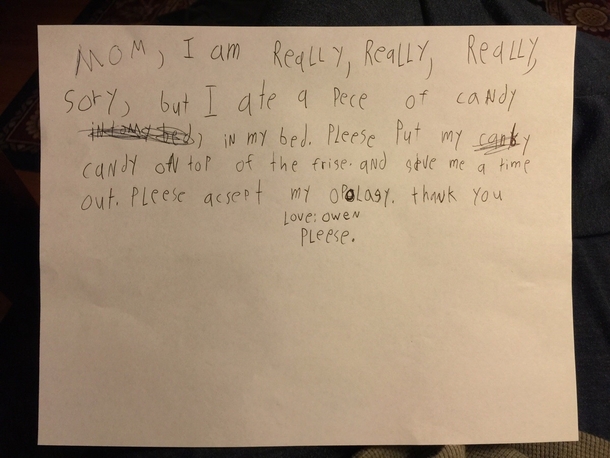 MOM, I am ReaLLy, ReaLLy, ReaLLy,
Sory, but I ate a Pece of caNdy
in my bed. PLeese Put my
caNdy oN top of the frise. and give me a time
out. PLeese acsept my oPoLagy. thank you
Love: oweN
PLeese.